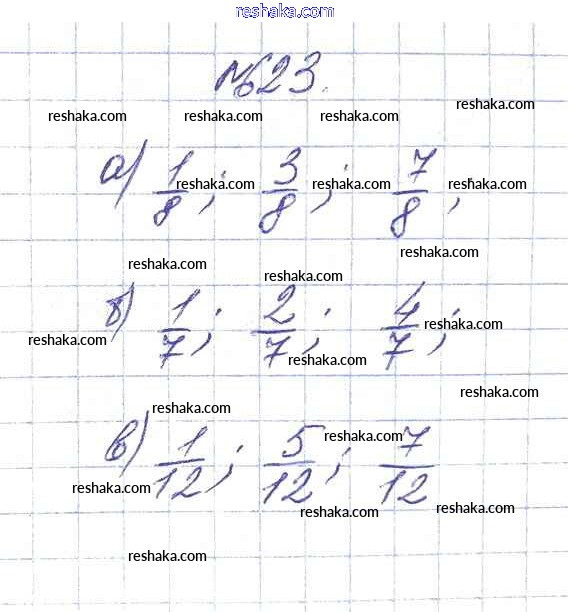 reshaka.com
№23.
reshaka.com reshaka.com reshaka.com reshaka.com
а) 1/8; 3/8; 7/8;
reshaka.com reshaka.com reshaka.com
reshaka.com
reshaka.com
reshaka.com
б) 1/7; 2/7; 4/7;
reshaka.com
reshaka.com
reshaka.com
reshaka.com
reshaka.com
в) 1/12; 5/12; 7/12
reshaka.com
reshaka.com
reshaka.com
reshaka.com
reshaka.com